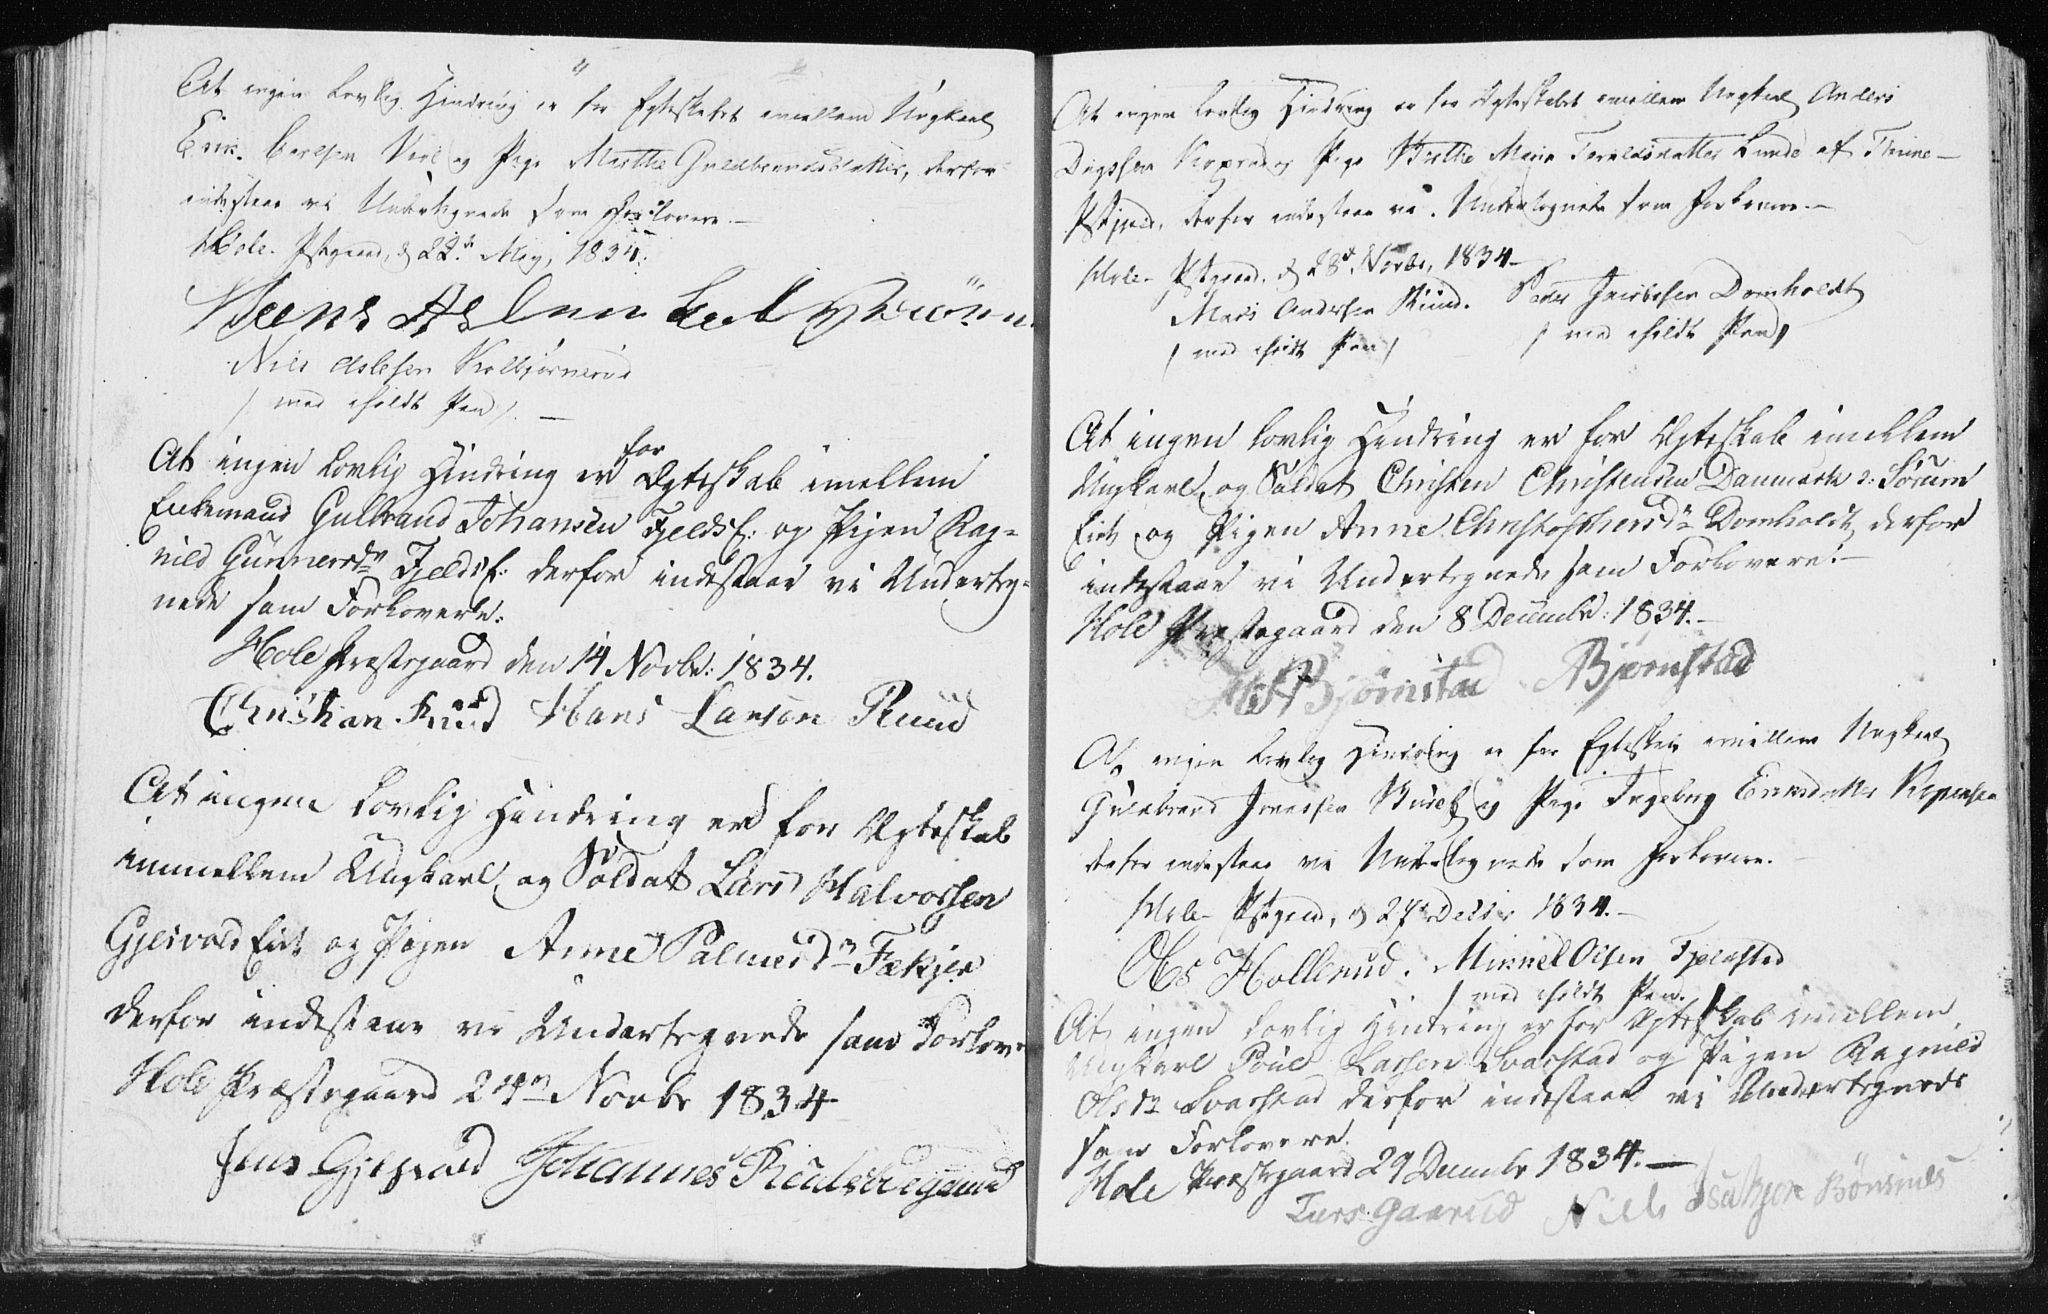 At ingen Lovlig Hindring er for Egteskabet imellem Ungkarl
Erik Carlsen Viel og Pige Marthe Guldbrandsdatter, derfor
indestaar vi Undertegnede som Forlovere.—
Hole Pstgaard, d 22de May, 1834.
Niels Aslesen Kolbjørnerud
/ med iholdt Pen /. —
At ingen Lovlig Hindring er for Ægteskab imellem
Enkemand Gulbrand Johansen Fjeldsf: og Pigen Rag-
nild Gunnersdn Fjeldsf: derfor indestaar vi Underteg-
nede som Forlovere.
Hole Præstegaard den 14 Novbr: 1834.
Christian Ruud Hans Larsen Ruud
At ingen lovlig Hindring er for Ægteskab
immellem Ungkarl og Soldat Lars Halvorsen
Gjesvold Eie og Pigen Anne Palmesdn Fækjer
derfor indestaar vi Undertegnede som Forlove
Hole Præstegaard 24n Novbr 1834
Jens Gjesvold Johannes
At ingen Lovlig Hindring er for Ægteskabet imellem Ungkarl Anders
Pige Birthe Maria Lunde af
Pstgjeld, derfor indestaar vi Undertegnede som Forlovere.—
Hole Pstgaard, d 28d Novbr, 1834—
Mons Andersen Ruud. Peder Jacobsen Domholdt
/ med iholdt Pen / / med iholdt Pen /
At ingen lovlig Hindring er for Ægteskab imellem
Ungkarl og Soldat Christen Christensen Danmark Sørum
Eie og Pigen Anne Christophersdn Domholdt derfor
indestaar vi Undertegnede som Forlovere.—
Hole Præstegaard den 8 Decembr: 1834.—
Bjørnstad ABjørnstad
At ingen Lovlig Hindring er for Egteskab imellem Ungkarl
Guldbrand og Pige Ingeborg Eriksdatter
derfor indestaar vi Undertegnede som Forlovere.—
Hole Pstgaard, d 27de Decbr 1834.—
Ols Hollerud. Mikkel Olsen Fjeldstad
/ med iholdt Pen. /
At ingen lovlig Hindring er for Ægteskab imellem
Ungkarl Poul Larsen Svarstad og Pigen Ragnild
Olsdn Svarstad derfor indestaar vi Undertegnede
som Forlovere.
Hole Præstegaard 29 Decembr 1834.—
Lars Gaarud Niels Bønsnes